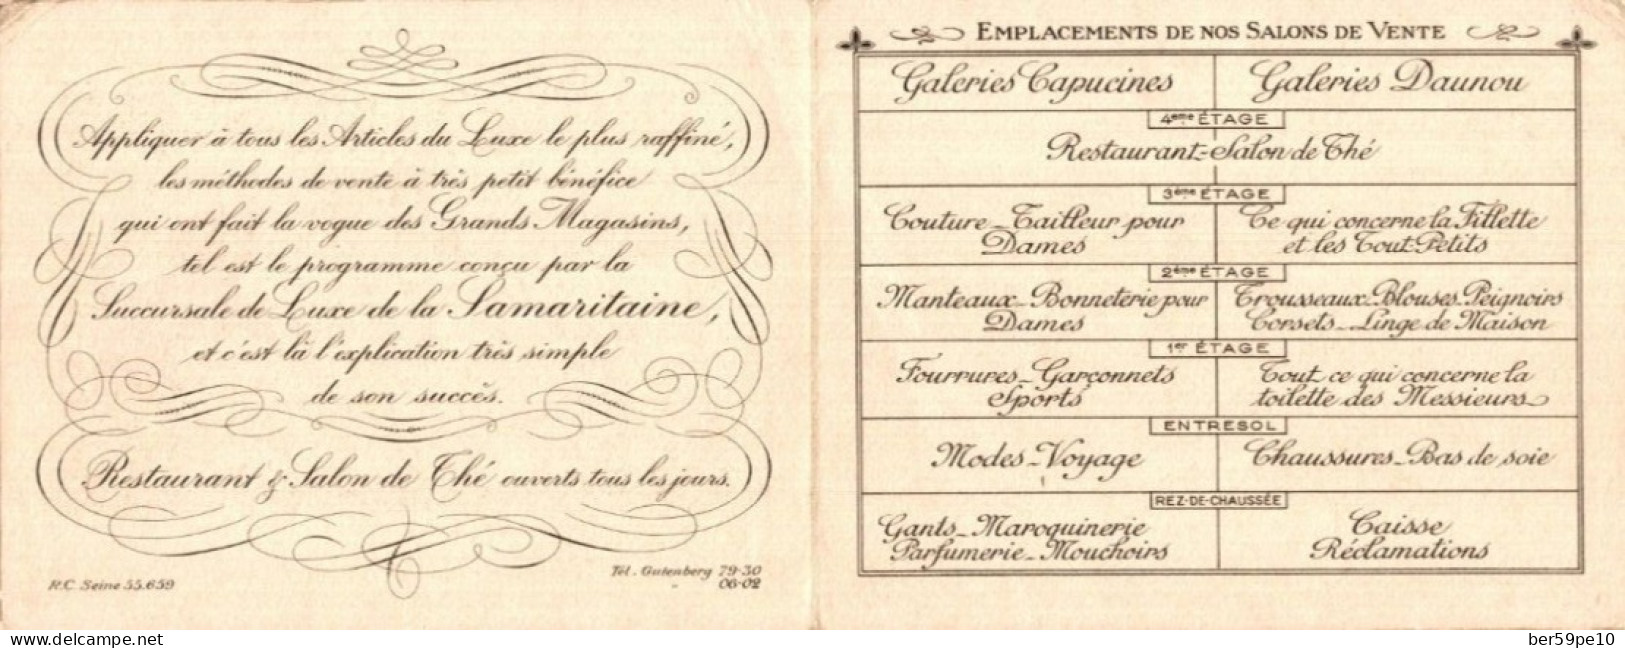 Appliquer à tous les Articles du Luxe le plus raffiné,
les méthodes de vente à très petit bénéfice
qui ont fait la vogue des Grands Magasins,
tel est le programme conçu par la
Succursale de Luxe de la Samaritaine,
et c'est là l'explication très simple
de son succès.
Restaurant & Salon de Thé ouverts tous les jours.
R.C. Seine 55.659
Tél. Gutenberg 79-30
" 06-02
EMPLACEMENTS DE NOS SALONS DE VENTE
Galeries Capucines
Galeries Daunou
4eme ÉTAGE
Restaurant-Salon de Thé
3ème ÉTAGE
Couture-Tailleur pour
Dames
Ce qui concerne la Fillette
et les Tout-Petits
2ème ÉTAGE
Manteaux-Bonneterie pour
Dames
Trousseaux-Blouses-Peignoirs
Corsets-Linge de Maison
1er ÉTAGE
Fourrures-Garçonnets
Sports
Tout ce qui concerne la
toilette des Messieurs
ENTRESOL
Modes-Voyage
Chaussures-Bas de soie
REZ-DE-CHAUSSÉE
Gants-Maroquinerie
Parfumerie-Mouchoirs
Caisse
Réclamations
www.delcampe.net
ber59pe10